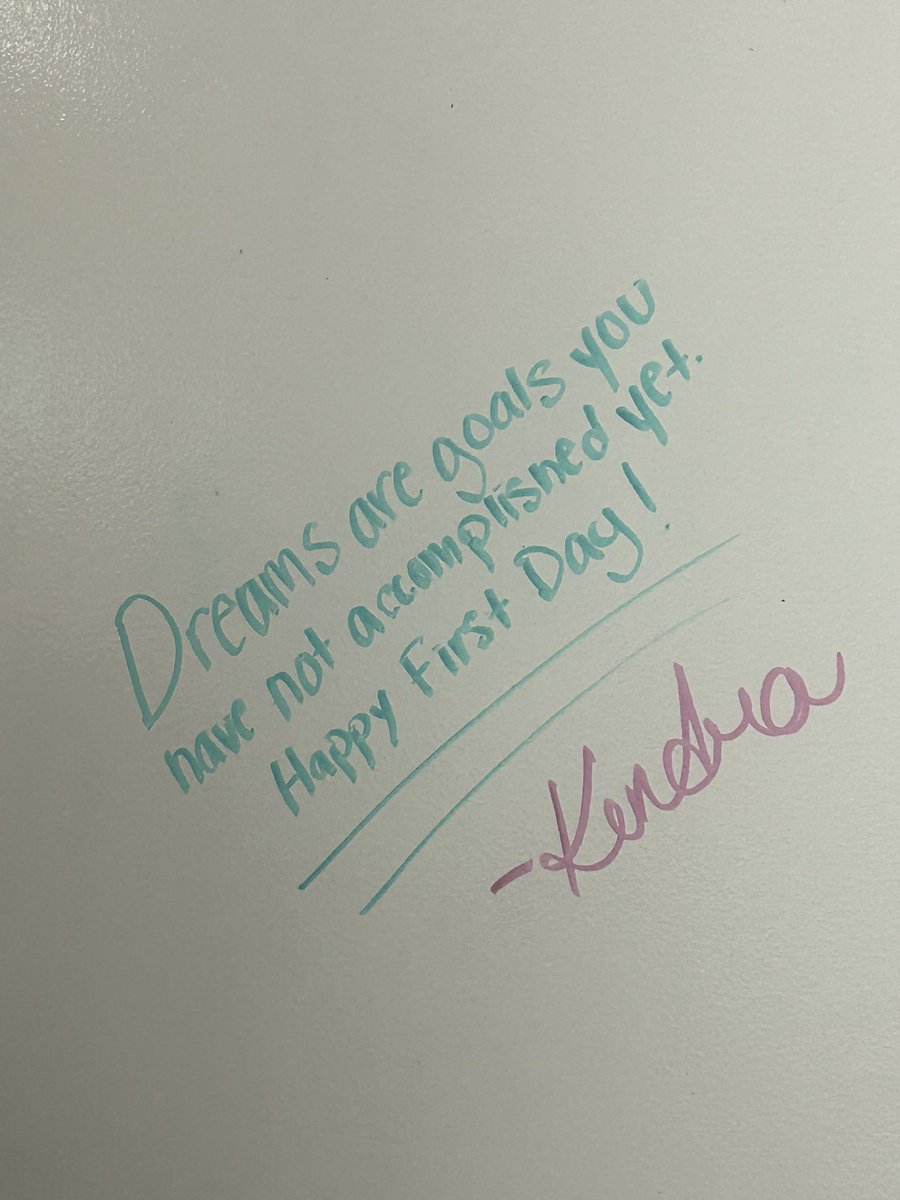 Dreams are goals you
have not accomplished yet.
Happy First Day!
-Kendra